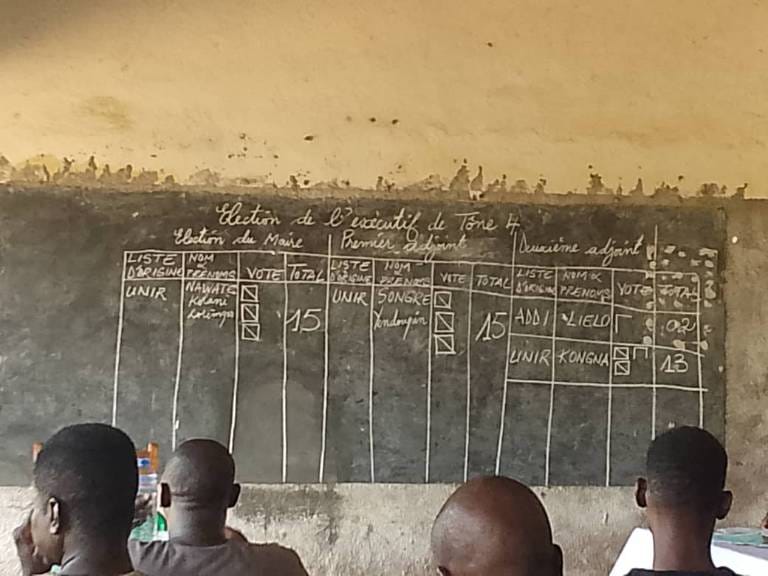 Election de l'exécutif de Tône 4
Election du Maire Premier adjoint Deuxième adjoint
LISTE D'ORIGINE NOM & PRENOMS VOTE TOTAL LISTE D'ORIGINE NOM & PRENOMS VOTE TOTAL LISTE D'ORIGINE NOM & PRENOMS VOTE TOTAL
UNIR NAWATE Kolani 15 UNIR SONGRE Yendoupin 15 ADDI LIELO 02
UNIR KONGNA 13